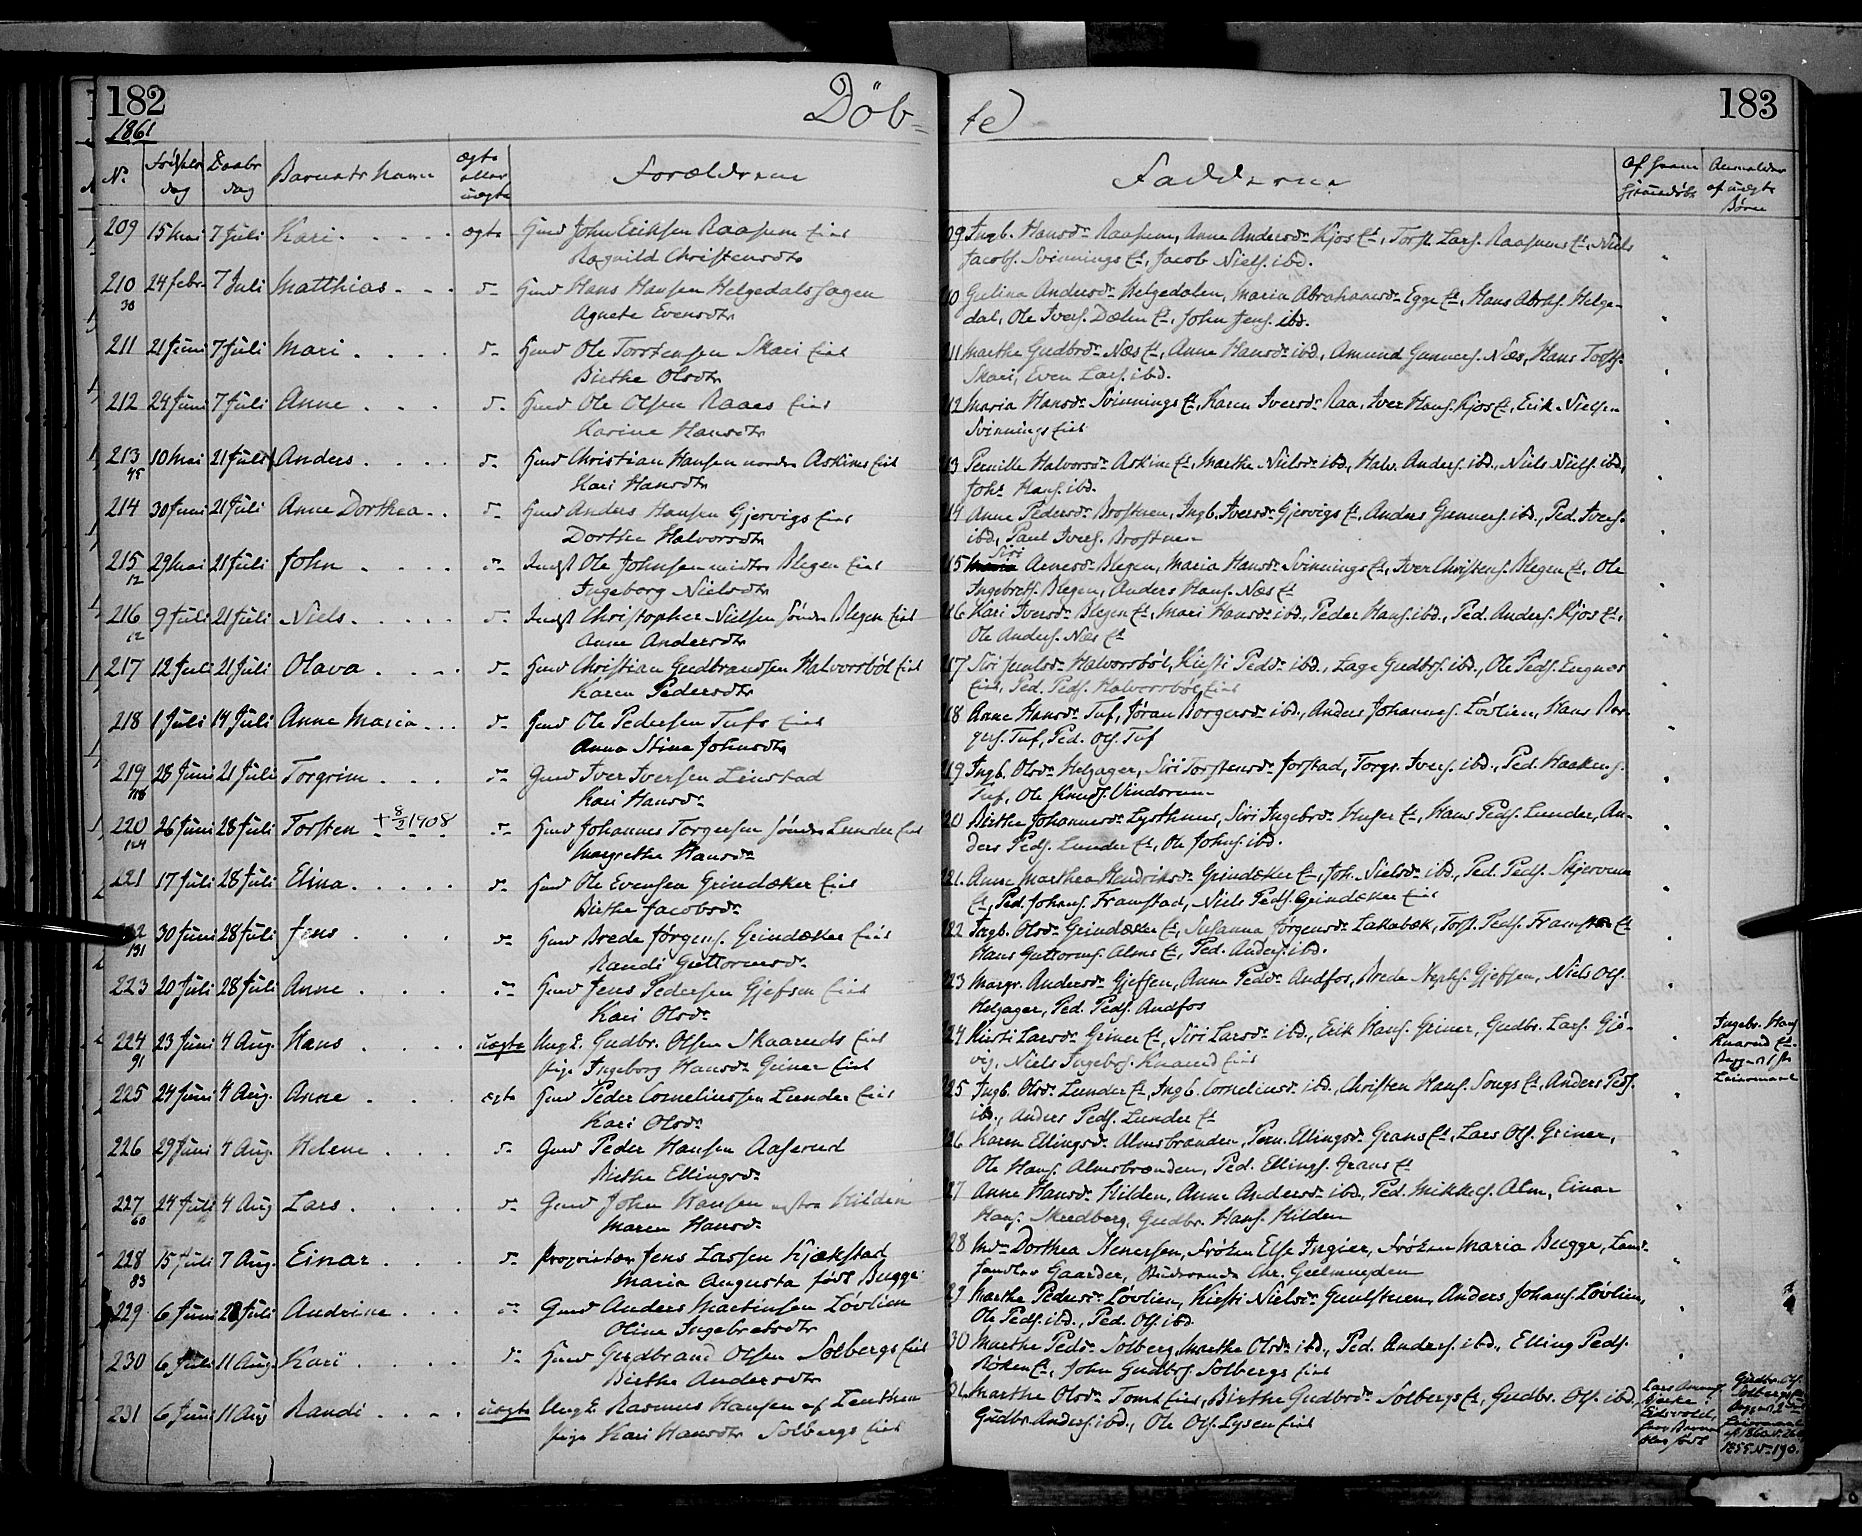 182
1861
Døb=
N.
Fødsels Daabs Barnets Navn ægte Forældrene
dag dag eller
uægte
209 15 Mai 7 Juli Kari ægte Gmd John Eriksen Raasum Eiet
Ragnild Christensdtr
210 24 Febr 7 Juli Matthias d- Gmd Hans Hansen Helgedalshagen
30 Agnete Evensdtr
211 21 Juni 7 Juli Mari d- Gmd Ole Torstensen Skari Eiet
Birthe Olsdtr
212 24 Juni 7 Juli Anne d- Gmd Ole Olsen Raaes Eiet
Karine Hansdtr
213 10 Mai 21 Juli Anders d- Gmd Christian Hansen nordre Askims Eiet
45 Kari Hansdtr
214 30 Juni 21 Juli Anne Dorthea d- Gmd Anders Hansen Gjervigs Eiet
Dorthe Halvorsdtr
215 29 Mai 21 Juli John d- Indst Ole Johnsen midtre Blegen Eiet
12 Ingeborg Nielsdtr
216 9 Juli 21 Juli Niels d- Indst Christopher Nielsen søndre Blegen Eiet
12 Anne Andersdtr
217 12 Juli 21 Juli Olava d- Gmd Christian Gudbrandsen Halvorsbøl Eiet
Karen Pedersdtr
218 1 Juli 14 Juli Anne Maria d- Gmd Ole Pedersen Tufs Eiet
Anna Stina Johnsdtr
219 28 Juni 21 Juli Torgrim d- Gmd Iver Iversen Linstad
Kari Hansd-
220 26 Juni 28 Juli Torsten + 8/2 1908 d- Gmd Johannes Torgersen søndre Lunder Eiet
124 Margrethe Hansd-
221 17 Juli 28 Juli Elina d- Gmd Ole Evensen Grindaker Eiet
Birthe Jacobsd-
222 30 Juni 28 Juli Jens d- Gmd Brede Jørgens. Grindaker Eiet
131 Randi Guttormsd-
223 20 Juli 28 Juli Anne d- Gmd Jens Pedersen Gjefsen Eiet
Kari Olsd-
224 23 Juni 4 Aug. Hans uægte Ungk. Gudbr. Olsen Skaaruds Eiet
91 Pige Ingeborg Hansd- Griner Eiet
225 24 Juni 4 Aug. Anne ægte Gmd Peder Corneliussen Lunder Eiet
Kari Olsd-
226 29 Juni 4 Aug. Helene d- Gmd Peder Hansen Aaserud
Birthe Ellingsd-
227 24 Juli 4 Aug Lars d- Gmd John Hansen østre Hilden
60 Maren Hansd-
228 15 Juli 7 Aug. Einar d- Proprietær Jens Larsen Kjækstad
83 Maria Augusta født Bugge
229 6 Juni 28 Juli Andrine d- Gmd Anders Martinsen Løvlien
Oline Ingebretsdtr
230 6 Juli 11 Aug Kari d- Gmd Gudbrand Olsen Solbergs Eiet
Birthe Andersdtr
231 6 Juni 11 Aug Randi uægte Ungk. Rasmus Hansen af
Pige Kari Hansdtr Solbergs Eiet
183
te
Fadderne
Af hvem Anmeldelse
hjemmedøbt af uægte
Børn
09 Ingb. Hansd- Raasum, Anne Andersd- Kjos Et, Torst. Lars. Raasums Et, Niels
Jacobs. Svinnings Et, Jacob Niels. ibd.
10 Gulina Andersd- Helgedalen, Maria Abrahamsd- Egge Et, Hans Abrhs. Helge-
dal, Ole Ivers. Dælen Et, John Jens. ibd.
11 Marthe Gudbrd- Næs Et, Anne Hansd- ibd, Amund Gunners. Næs, Hans Torsts.
Skari, Even Lars. ibd.
12 Maria Hansd- Svinnings Et, Karen Iversd- Raa, Iver Hans. Kjos Et, Erik Nielsen
Svinnings Eiet
13 Pernille Halvorsd- Askim Et, Marthe Nielsd- ibd, Halv. Anders. ibd., Niels Niels. ibd,
Johs Hans. ibd.
14 Anne Pedersd- Brostuen, Ingb. Iversd- Gjervigs Et, Anders Gunners. ibd., Ped. Ivers.
ibd, Paul Ivers. Brostuen
Siri
15 Arnesd- Blegen, Maria Hansd- Svinnings Et, Iver Christens. Blegen Et, Ole
Ingebrets. Blegen, Anders Hans. Næs Et
16 Kari Iversd- Blegen Et, Mari Hansd- ibd, Peder Hans. ibd., Ped. Anders. Kjos Et,
Ole Anders. Næs Et
17 Siri Halvorsbøl, Kirsti Pedsd- ibd., Lage Gudbrs. ibd., Ole Peds. Engnæs
Eiet, Ped. Peds. Halvorsbøl Eiet
18 Anne Hansd- Tuf, Jøran Borgersd- ibd., Anders Johannes. Løvlien, Hans Bor-
gers. Tuf, Ped. Ols. Tuf
19 Ingb. Olsd- Helgager, Siri Torstensd- Jorstad, Torgr. Ivers. ibd., Ped. Haakens.
Tuf, Ole Knuds. Vindorum
20 Birthe Johannesd- Lysthuus, Siri Ingebrd- Et, Hans Peds. Lunder, An-
ders Peds. Lunder Et, Ole Johns. ibd.
21. Anne Marthea Hendriksd- Grindaker Et, Joh. Nielsd- ibd., Ped. Peds. Skjervum
Et, Ped. Johans. Framstad, Niels Peds. Grindaker Eiet
22 Ingb. Olsd- Grindaker Et, Susanna Jørgensd- Lakabæk, Torst. Peds. Et
Hans Guttorms. Alms Et, Ped. Anders. ibd.
23 Margr. Andersd- Gjefsen, Anne Pedsd- Andfos, Brede Gjefsen, Niels Ols.
Helgager, Ped. Peds. Andfos
24 Kirsti Larsd- Griner Et, Siri Larsd- ibd., Erik Hans. Griner, Gudbr. Lars. Gjø-
vig, Niels Ingebrs. Knarud Eiet
Ingebr. Hans.
Knarud Et.
Begges 1ste
Leiermaal
25 Ingb. Olsd- Lunder Et, Ingb. Corneliusd- ibd., Christen Hans. Songs Et, Anders Peds.
ibd., Anders Peds. Lunder Et
26 Karen Ellingsd- Almsbranden, Pern. Ellingsd- Grans Et, Lars Ols. Griner,
Ole Hans. Almsbranden, Ped. Ellings. Grans Et
27 Anne Hansd- Hilden, Anne Andersd- ibd, Ped. Mikkels. Alm, Einar
Hans. Skredberg, Gudbr. Hans. Hilden
28 Md- Dorthea Stenersen, Frøken Else Ingier, Frøken Maria Bugge, Land-
handler Gaarder, Studerende Chr. Geelmuyden
29 Marthe Pedersd- Løvlien, Kirsti Nielsd- Anders Johans. Løvlien,
Ole Peds. ibd., Ped. Ols. ibd.
30 Marthe Pedsd- Solberg, Marthe Olsd- ibd., Ped. Anders. ibd., Elling Peds.
Røken Et, John Gudbrs. Solbergs Eiet
31. Marthe Olsd- Tomt Eiet, Birthe Gudbrsd- Solbergs Et, Gudbr. Ols. ibd,
Gudbr. Anders. ibd., Ole Ols. Lysen Eiet
Lars
Eidsvold,
hvor Barnet
blev født
Gudbr. Ols.
Solbergs Et
Begges
Leiermaal
1855 N- 190.